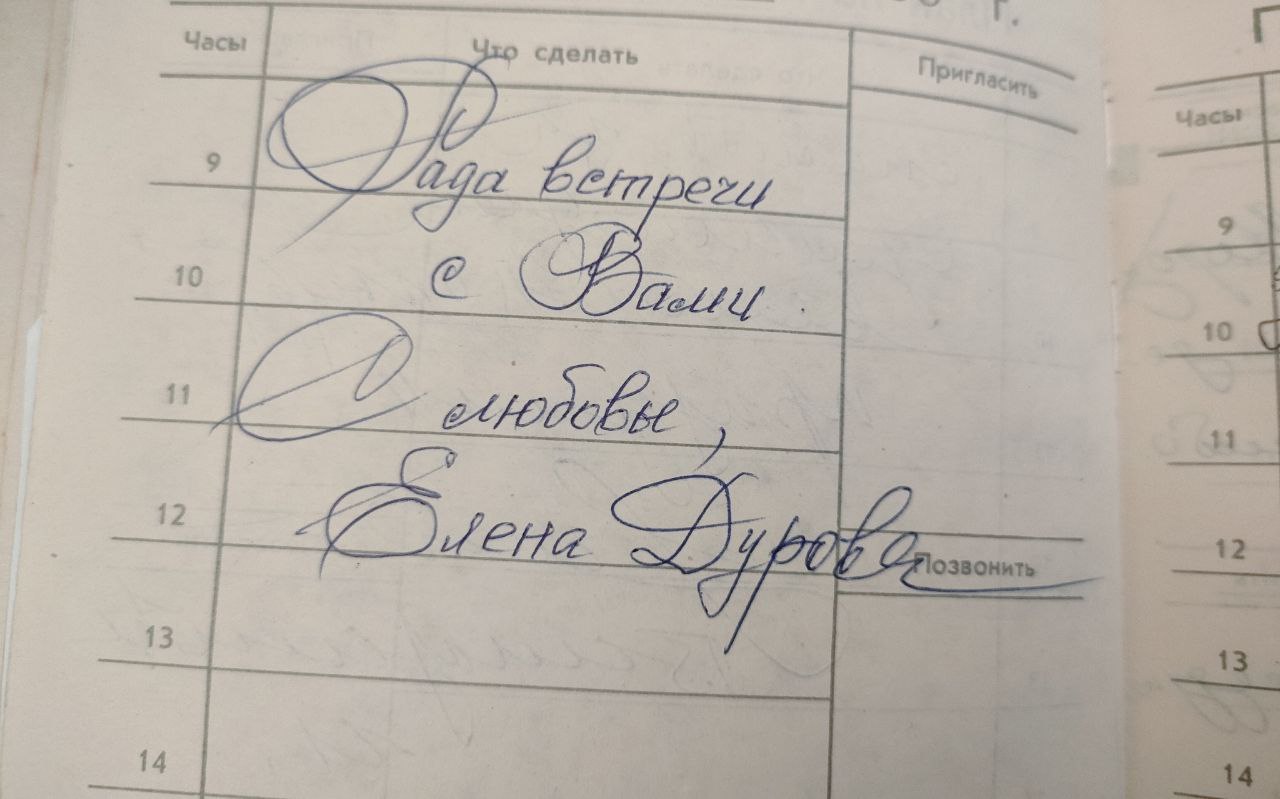 г.
Часы Что сделать Пригласить
9 Рада встречи
10 с Вами
11 С любовью,
12 Елена Дурова
Позвонить
13
14
Часы
9
10
11
12
13
14